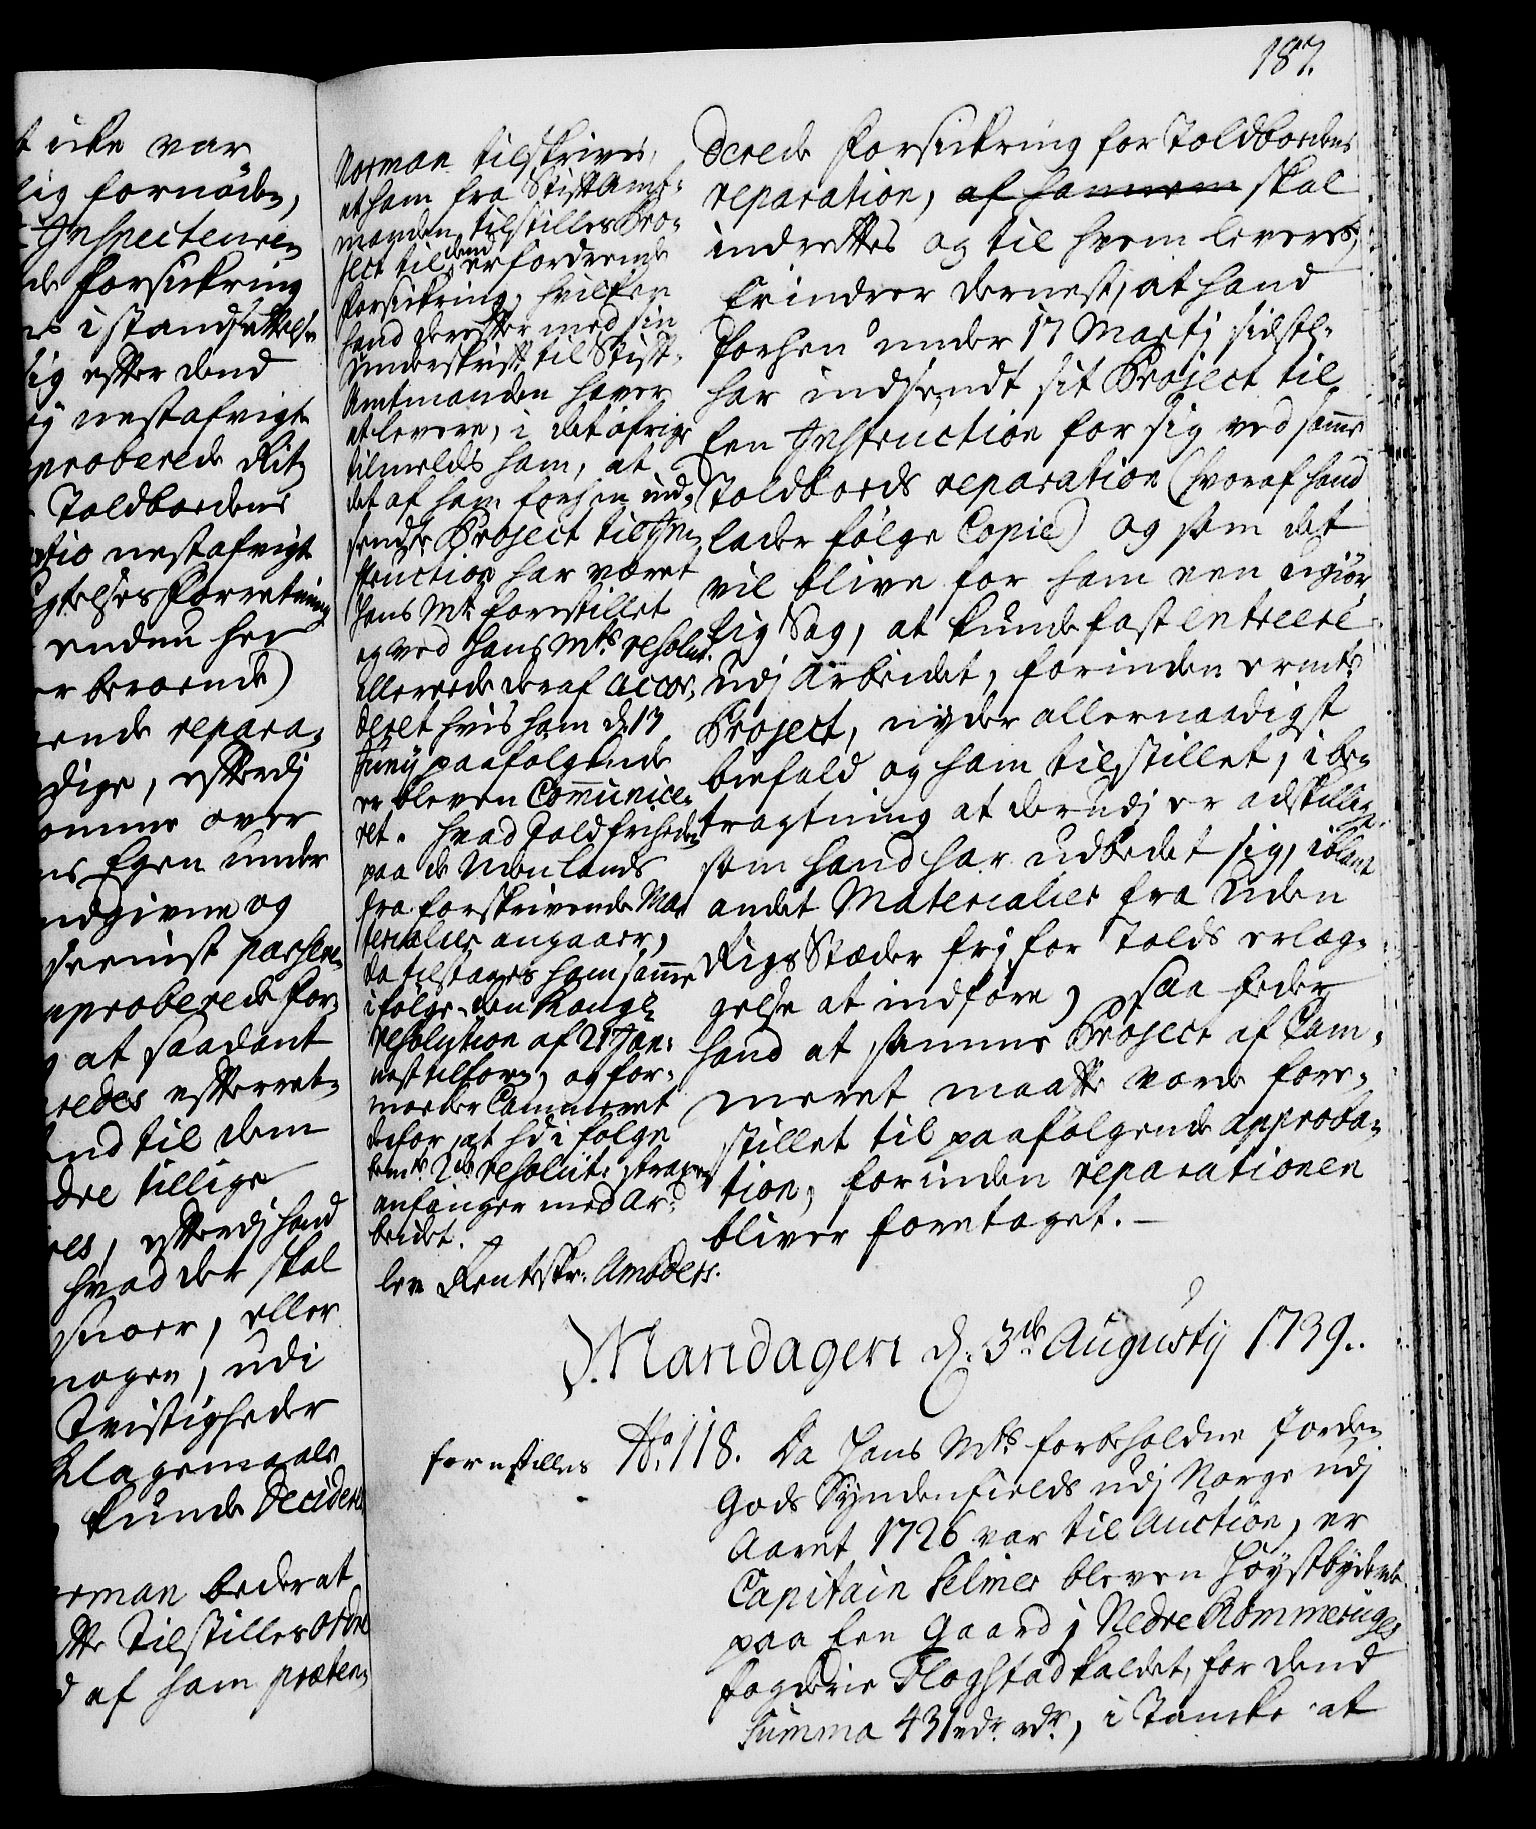 187.
t icke var
lig fornøden,
Inspecteuren
de forsickring
ns i standsættelse
sig efter dend
ij nestafvigt
proberede Ritz
Toldbodens
atio nestafvigt
gtelses Forretning
enden her
er beroende)
ende repara-
dige, efterdj
omme over
ns Egen under
ndgivne og
seenist passere-
approberede for-
at saadant
redes efterret-
end til dem
dre tillige
res, efterdj hand
hvad der skal
snoer, eller
nogen, udi
Tvistigheder
Klagemaals
kunde Decidere
orman beder at
tte tilstilles ordre
d af ham præten-
Norman tilskrives,
at ham fra Stiftamt-
manden tilstilles Pro-
ject til dend erfordrende
forsickring, hvilken
hand derefter med sin
underskrift til Stift-
Amtmanden haver
at levere, i det øfrige
tilmeldes ham, at
det af ham forhen ind-
sendte Project til In-
struction har været
Hans Mt: forestillet
og ved Hans Mts resolut:
allereede deraf accor-
deret hvis ham d. 17
Junij paafølgende
er bleven Communice-
ret. hvad Toldfriheden
paa de Uden lands
fra forskrivende Ma-
terialier angaaer,
da tilstaaes ham samme
i følge den Kongl:
resolution af 21 Jan:
nest tilforn, og for-
moeder Cammeret
defor, at hd i følge
bemte 2de resolut: straxen
anfanger med Ar-
beidet.
lev Rentskr: Amders.
derede Forsickring for Toldbodens
reparation, af hannem skal
indrettes og til hvem leveres,
Erindrer dernest, at hand
forhen under 17 Martj sidstl:
har indsendt sit Project til
Een Instruction for sig ved samme
Toldbods reparation (hvoraf hand
lader følge Copie) og som det
vil blive for ham een ugiør-
lig Sag, at kunde fast entreere
udj Arbeidet, forinden ermte
Project, nyder allernaadigst
biefald og ham tilstillet, i be-
tragtning at derudj er adskillige
som hand har udbedet sig, iblant
andet Materialier fra uden
Rigs Stæder frj for Tolds erlæg-
gelse at indføre, saa beder
hand at samme Project af Cam-
meret maatte vorde fore-
stillet til paafølgende approba-
tion, forinden reparationen
bliver foretaget.
Mandagen d. 3de Augustij 1739.
forestilles No. 118. Da Hans Mts forbeholdne Jorde-
Gods Syndenfields udj Norge udj
Aaret 1726 var til Auction, er
Capitain Selmer bleven Høystbydende
paa Een Gaard j Nedre Rommeriges
fogderie Flogstad kaldet, for dend
Summa 431 rdr, i Tancke at